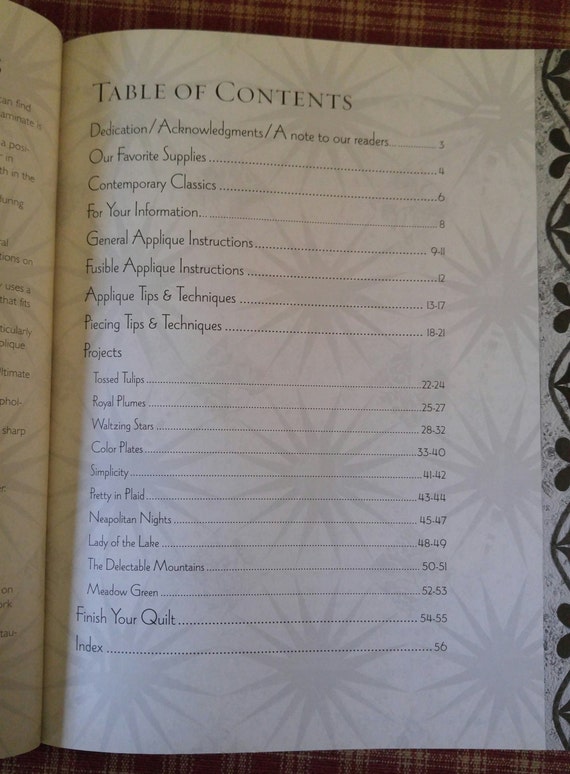 S
can find
aminate is
a posi-
r in
th in the
during
ral
tions on
y uses a
that fits
ticularly
plique.
ltimate
phol-
sharp
er.
on
ork
tau-
TABLE OF CONTENTS
Dedication/Acknowledgments/A note to our readers 3
Our Favorite Supplies 4
Contemporary Classics 6
For Your Information 8
General Applique Instructions 9-11
Fusible Applique Instructions 12
Applique Tips & Techniques 13-17
Piecing Tips & Techniques 18-21
Projects
Tossed Tulips 22-24
Royal Plumes 25-27
Waltzing Stars 28-32
Color Plates 33-40
Simplicity 41-42
Pretty in Plaid 43-44
Neapolitan Nights 45-47
Lady of the Lake 48-49
The Delectable Mountains 50-51
Meadow Green 52-53
Finish Your Quilt 54-55
Index 56